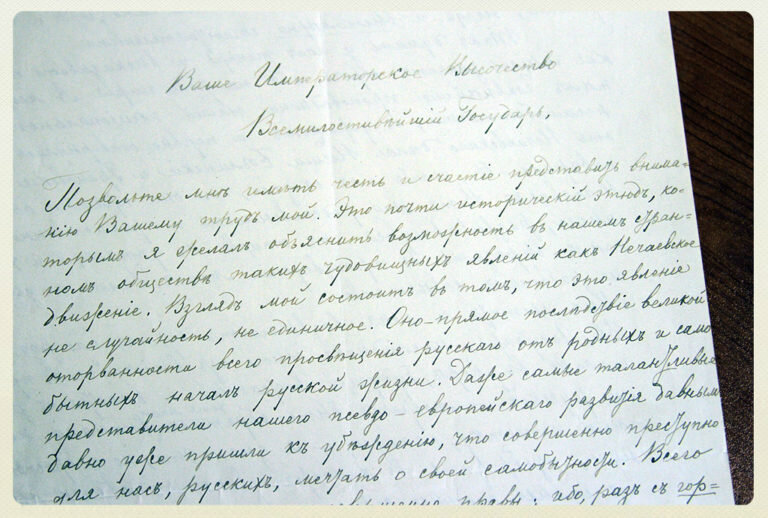 Ваше Императорское Высочество
Всемилостивѣйшій Государь,
Позвольте мнѣ имѣть честь и счастіе представить внима-
нію Вашему трудъ мой. Это почти историческій этюдъ, ко-
торымъ я желалъ объяснить возможность въ нашемъ стран-
номъ обществѣ такихъ чудовищныхъ явленій какъ Нечаевское
движеніе. Взглядъ мой состоитъ въ томъ, что это явленіе
не случайность, не единичное. Оно – прямое послѣдствіе великой
оторванности всего просвѣщенія русскаго отъ родныхъ и само
бытныхъ началъ русской жизни. Даже самые талантливые
представители нашего псевдо – европейскаго развитія давнымъ
давно уже пришли къ убѣжденію, что совершенно преступно
для насъ, русскихъ, мечтать о своей самобытности. Всего
правы; ибо, разъ съ гор=